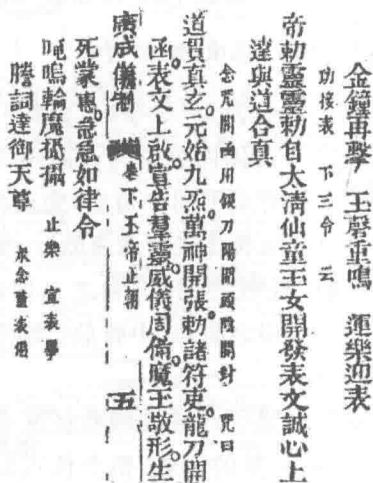 金鐘再擊　玉聲重鳴　運樂迎表
功接表　下三令　云
帝勅靈靈勅自太清仙童玉女開發表文誠心上
達與道合真
念咒開函用銀刀陽開頭陰開封　咒曰
道貫真玄元始九炁萬神開張勅諸符吏龍刀開
函表文上啟宣告慧靈威儀周備魔王敬形生
廣成儀制　卷下玉帝正朝　五
死蒙惠急急如律令
吽嗚輪魔攝　止樂　宣表畢
騰詞達御天尊　衆念